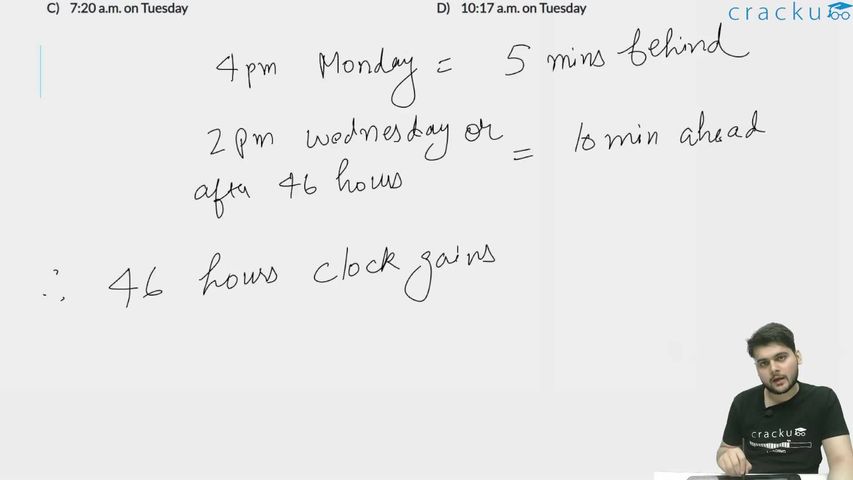 C) 7:20 a.m. on Tuesday
D) 10:17 a.m. on Tuesday
cracku
4pm Monday = 5 mins behind
2pm wednesday or
after 46 hours = 10 min ahead
∴ 46 hours clock gains
cracku